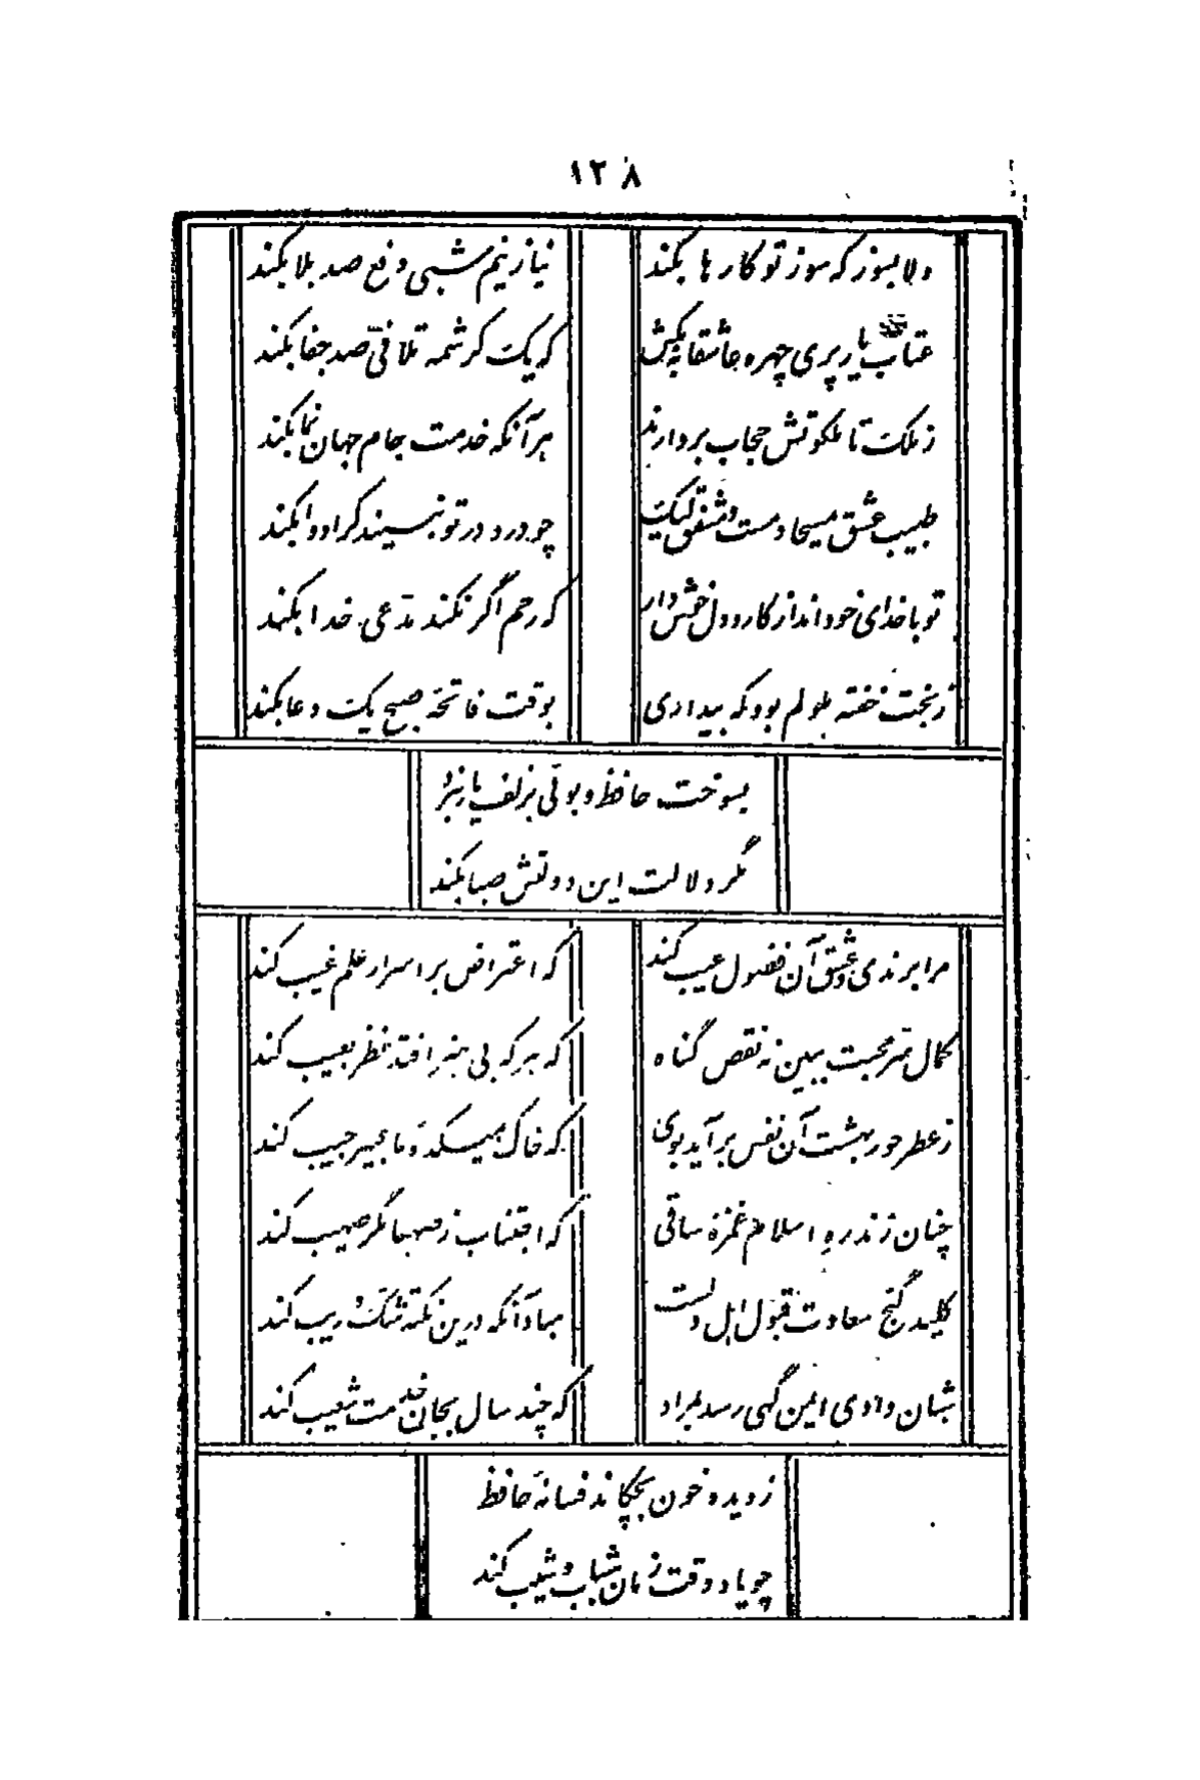 ۱۲۸
دلا بسوز که سوز تو کارها بکند
نیاز نیم شبی دفع صد بلا بکند
عتاب یار پری چهره عاشقانه بکش
که یک کرشمه تلافی صد جفا بکند
ز ملک تا ملکوتش حجاب بردارند
هر آنکه خدمت جام جهان نما بکند
طبیب عشق مسیحا دمست و مشفق لیک
چو درد در تو نبیند کرا دوا بکند
تو با خدای خود انداز کار و دل خوش دار
که رحم اگر نکند مدعی خدا بکند
ز بخت خفته ملولم بود که بیداری
بوقت فاتحهٔ صبح یک دعا بکند
بسوخت حافظ و بوئی بزلف یار نبرد
مگر دلالت این دولتش صبا بکند
مرا برندی و عشق آن فضول عیب کند
که اعتراض بر اسرار علم غیب کند
کمال سر محبت ببین نه نقص گناه
که هر که بی هنر افتد نظر بعیب کند
ز عطر حور بهشت آن نفس برآید بوی
که خاک میکدهٔ ما عبیر جیب کند
چنان زند ره اسلام غمزهٔ ساقی
که اجتناب ز صهبا مگر صهیب کند
کلید گنج سعادت قبول اهل دلست
مباد آنکه درین نکته شک و ریب کند
شبان وادی ایمن گهی رسد بمراد
که چند سال بجان خدمت شعیب کند
ز دیده خون بچکاند فسانهٔ حافظ
چو یاد وقت زمان شباب و شیب کند